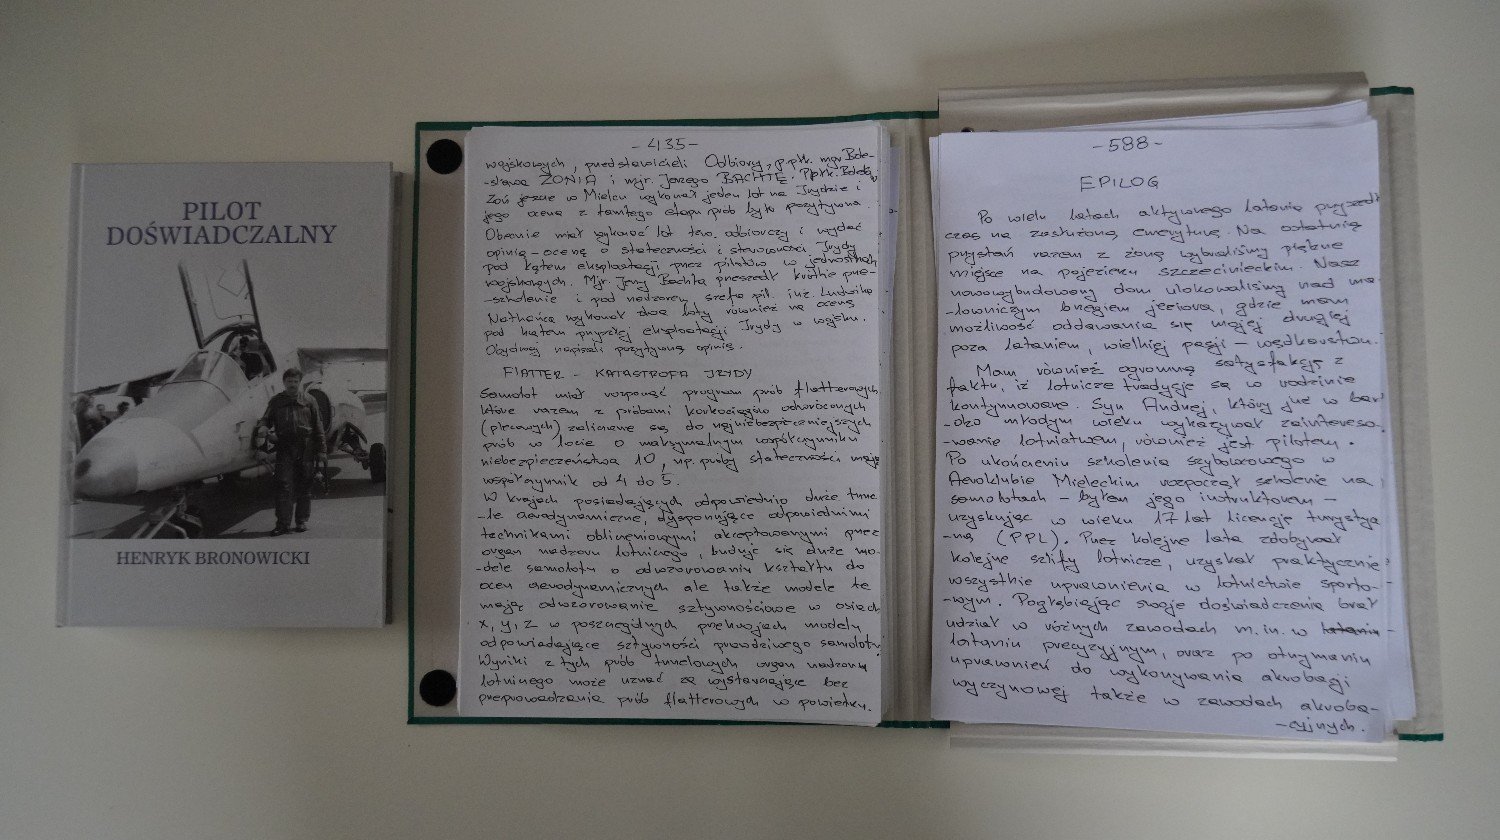 PILOT
DOŚWIADCZALNY
HENRYK BRONOWICKI
-435-
wojskowych, przedstawicieli Odbiorcy, p.ptk. mgr Bole-
-sława ZONIA i mjr. Jerzego BACHTĘ. Ppłk. Bolesław
Zoń jeszcze w Mielcu wykonał jeden lot na Irydzie i
jego ocena z tamtego etapu prób była pozytywna.
Obecnie miał wykonać lot tzw. odbiorczy i wydać
opinię - ocenę o stateczności i sterowności Irydy
pod kątem eksploatacji przez pilotów w jednostkach
wojskowych. Mjr. Jerzy Bachta przeszedł krótkie prze-
-szkolenie i pod nadzorem szefa pil. inż. Ludwika
Natkańca wykonał dwa loty również na ocenę
pod kątem przyszłej eksploatacji Irydy w wojsku.
Obydwaj napisali pozytywną opinię.
FLATTER - KATASTROFA IRYDY
Samolot miał rozpocząć program prób flatterowych,
które razem z próbami korkociągów odwróconych
(plecowych) zaliczane są do najniebezpieczniejszych
prób w locie o maksymalnym współczynniku
niebezpieczeństwa 10, np. próby stateczności mają
współczynnik od 4 do 5.
W krajach posiadających odpowiednio duże tune-
-le aerodynamiczne, dysponujące odpowiednimi
technikami obliczeniowymi akceptowanymi przez
organ nadzoru lotniczego, buduje się duże mo-
-dele samolotu o odwzorowaniu kształtu do
ocen aerodynamicznych ale także modele te
mają odwzorowanie sztywnościowe w osiach
x, y, z w poszczególnych przekrojach modelu
odpowiadające sztywności prawdziwego samolotu.
Wyniki z tych prób tunelowych organ nadzoru
lotniczego może uznać za wystarczające bez
przeprowadzania prób flatterowych w powietrzu.
-588-
EPILOG
Po wielu latach aktywnego latania przyszedł
czas na zasłużoną emeryturę. Na ostatnią
przystań razem z żoną wybraliśmy piękne
miejsce na pojezierzu szczecineckim. Nasz
nowowybudowany dom ulokowaliśmy nad ma-
-lowniczym brzegiem jeziora, gdzie mam
możliwość oddawania się mojej drugiej
poza lataniem, wielkiej pasji - wędkarstwu.
Mam również ogromną satysfakcję z
faktu, iż lotnicze tradycje są w rodzinie
kontynuowane. Syn Andrzej, który już w bar-
-dzo młodym wieku wykazywał zaintereso-
-wanie lotnictwem, również jest pilotem.
Po ukończeniu szkolenia szybowcowego w
Aeroklubie Mieleckim rozpoczął szkolenie na
samolotach - byłem jego instruktorem -
uzyskując w wieku 17 lat licencję turystycz-
-ną (PPL). Przez kolejne lata zdobywał
kolejne szlify lotnicze, uzyskał praktycznie
wszystkie uprawnienia w lotnictwie sporto-
-wym. Pogłębiając swoje doświadczenie brał
udział w różnych zawodach m.in. w latania
lataniu precyzyjnym, oraz po otrzymaniu
uprawnień do wykonywania akrobacji
wyczynowej także w zawodach akroba-
-cyjnych.